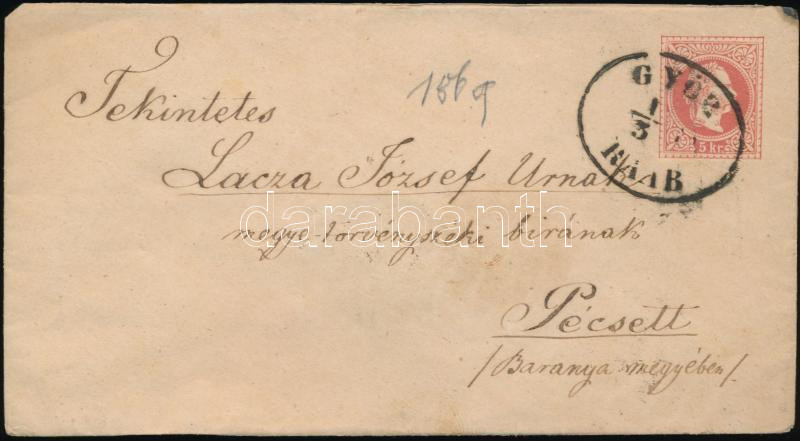 Tekintetes
1869
GYŐR
1/3
RAAB
5 kr.
Lacza József Urnak
megye-törvényszéki birának
darabanth
Pécsett
/Baranya megyében/